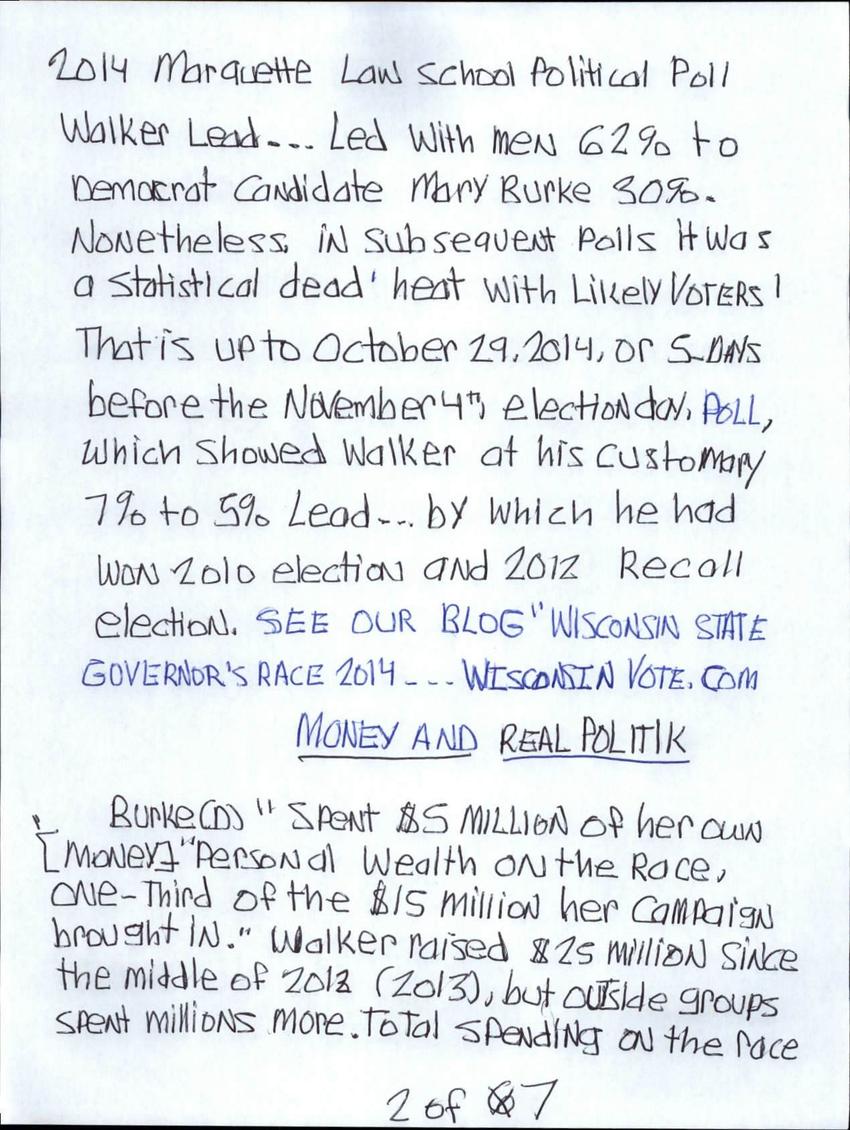 2014 Marquette Law School Political Poll
Walker Lead... Led with men 62% to
Democrat Candidate Mary Burke 30%.
Nonetheless, in subsequent polls it was
a statistical dead' heat with Likely VOTERS!
That is up to October 29, 2014, or 5 DAYS
before the November 4th, election day, POLL,
which showed Walker at his customary
7% to 5% Lead... by which he had
won 2010 election and 2012 Recall
election. SEE OUR BLOG "WISCONSIN STATE
GOVERNOR'S RACE 2014---WISCONSIN VOTE.COM
MONEY AND REAL POLITIK
Burke(D) "Spent $5 MILLION of her own
[Money] "Personal Wealth on the Race,
one-Third of the $15 million her Campaign
brought in." Walker raised $25 million since
the middle of 2013 (2013), but outside groups
spent millions more. Total spending on the race
2 of 7